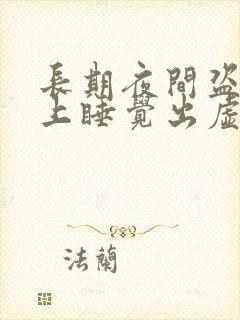 長期夜間盜
上睡覺出虛
法蘭